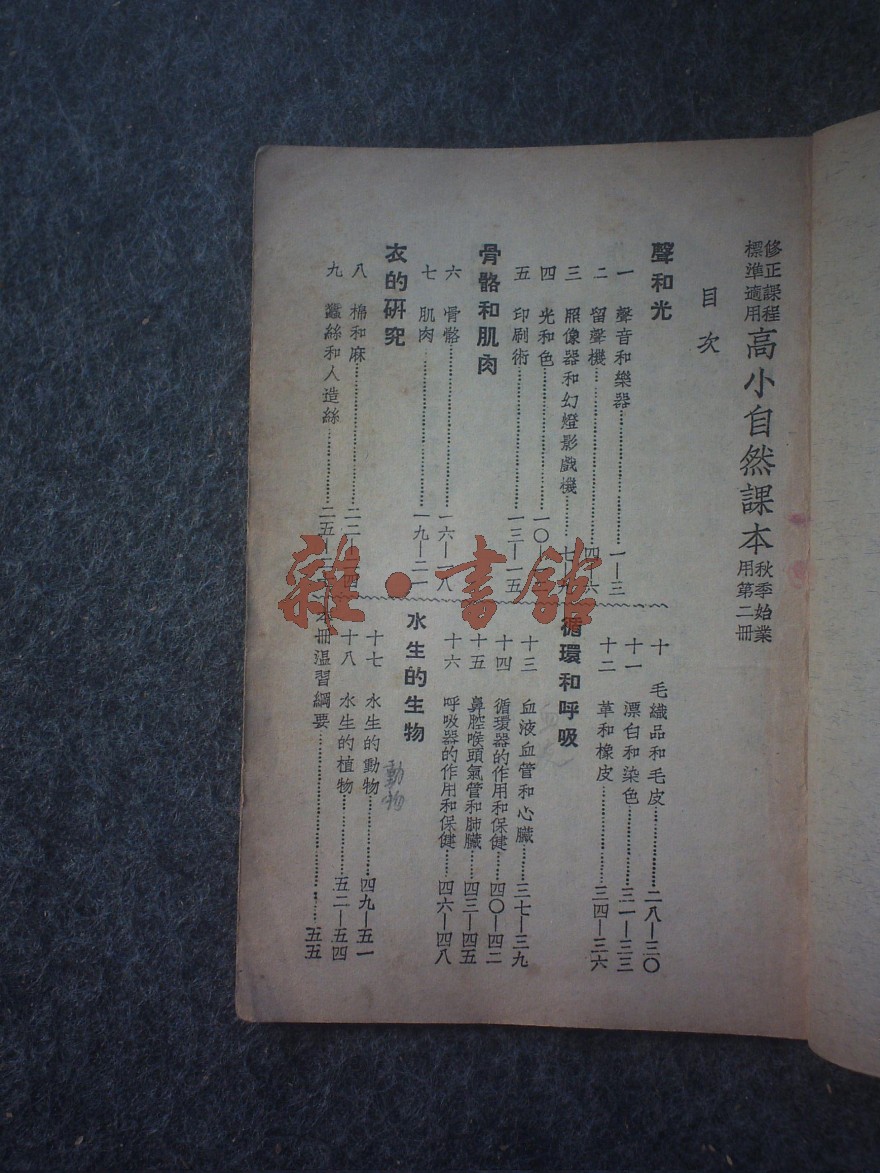 修正課程
標準適用
高小自然課本
秋季始業
用第二冊
目次
聲和光
一 聲音和樂器……一—三
二 留聲機……四—六
三 照像器和幻燈影戲機……七—九
四 光和色……一〇—
五 印刷術……一三—一五
骨骼和肌肉
六 骨骼……一六—一八
七 肌肉……一九—二一
衣的研究
八 棉和麻……二二—
九 蠶絲和人造絲……二五—
十 毛織品和毛皮……二八—三〇
十一 漂白和染色……三一—三三
十二 革和橡皮……三四—三六
循環和呼吸
十三 血液血管和心臟……三七—三九
十四 循環器的作用和保健……四〇—四二
十五 鼻腔喉頭氣管和肺臟……四三—四五
十六 呼吸器的作用和保健……四六—四八
水生的生物
十七 水生的動物……四九—五一
動物
十八 水生的植物……五二—五四
本冊溫習綱要……五五
雜·書館